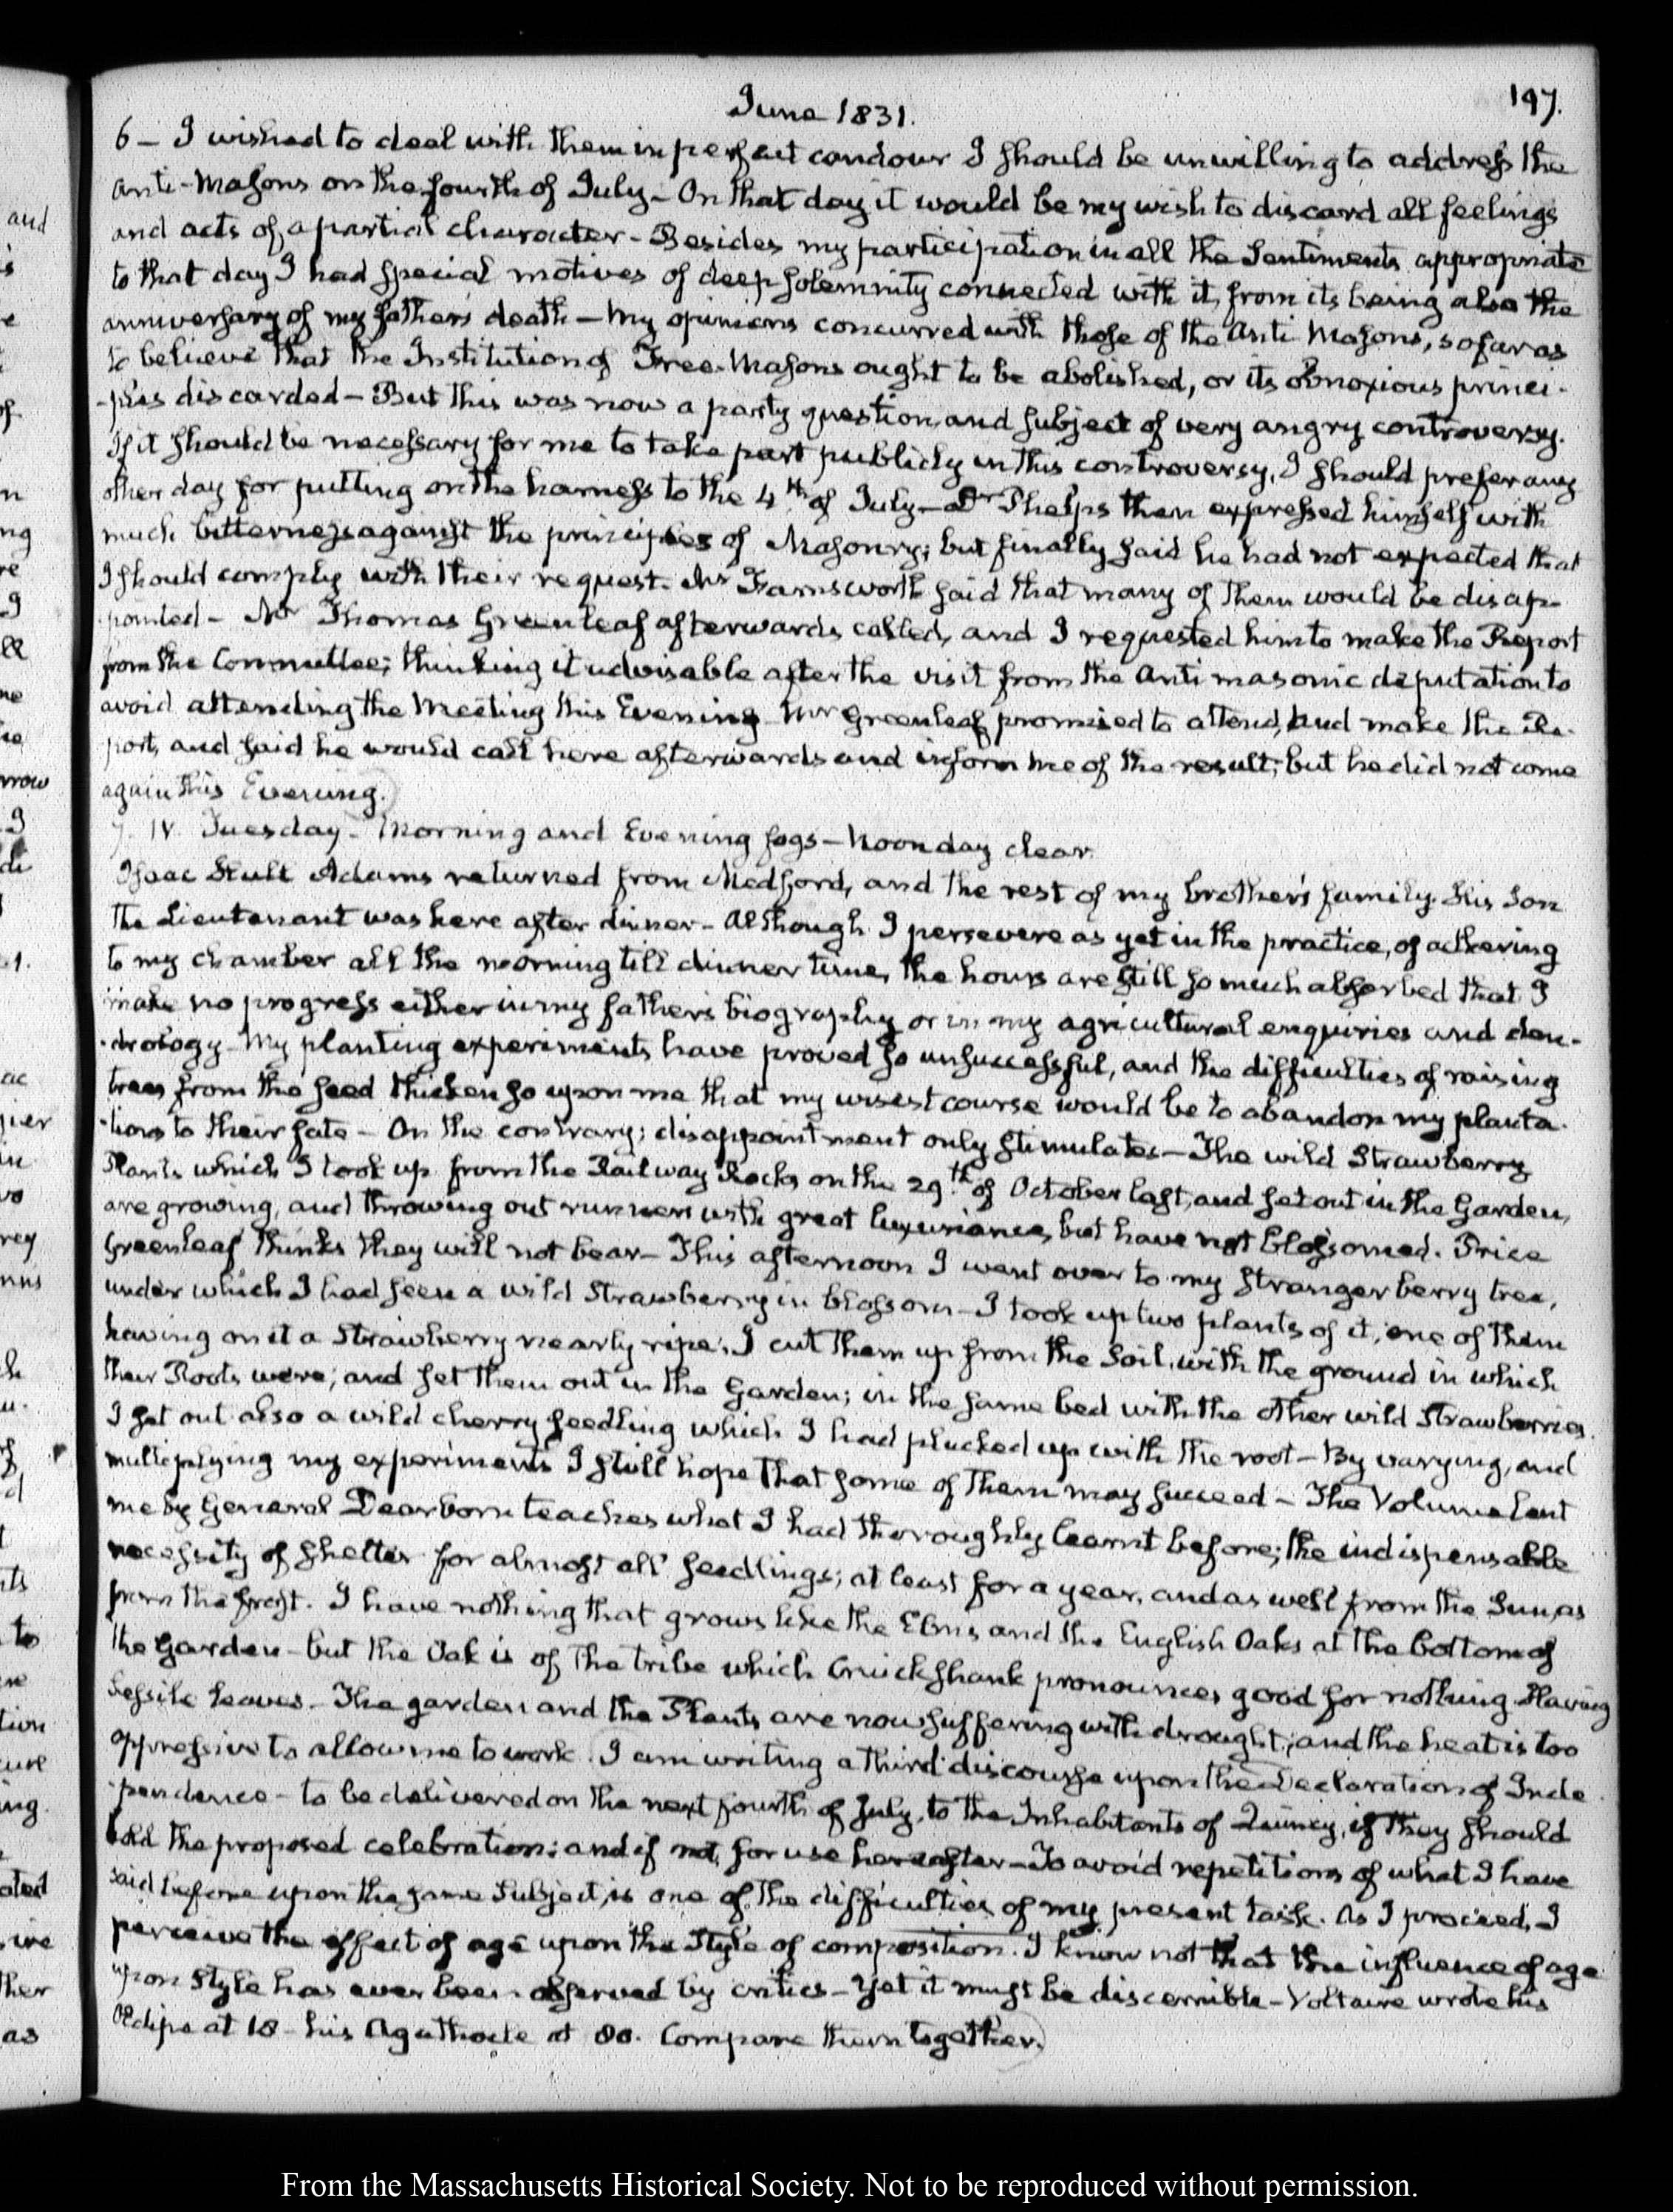 June 1831.
197.
6 – I wished to deal with them in perfect candour I should be unwilling to address the
Anti-Masons on the fourth of July – On that day it would be my wish to discard all feelings
and acts of a partial character – Besides my participation in all the Sentiments appropriate
to that day I had special motives of deep solemnity connected with it, from its being also the
anniversary of my father's death – My opinions concurred with those of the Anti Masons, so far as
to believe that the Institution of Free-Masons ought to be abolished, or its obnoxious princi-
-ples discarded – But this was now a party question, and subject of very angry controversy.
If it should be necessary for me to take part publicly in this controversy, I should prefer any
other day for putting on the harness to the 4th of July – Dr Phelps then expressed himself with
much bitterness against the principles of Masonry; but finally said he had not expected that
I should comply with their request. Mr Farnsworth said that many of them would be disap-
pointed – Mr Thomas Greenleaf afterwards called, and I requested him to make the Report
from the Committee; thinking it advisable after the visit from the Anti masonic deputation to
avoid attending the Meeting this Evening – Mr Greenleaf promised to attend, and make the Re-
port, and said he would call here afterwards and inform me of the result; but he did not come
again this Evening.
7. IV. Tuesday – Morning and Evening fogs – Noon day clear.
Isaac Hull Adams returned from Medford, and the rest of my brother's family. His Son
the Lieutenant was here after dinner – Although I persevere as yet in the practice, of adhering
to my chamber all the morning till dinner time, the hours are still so much absorbed that I
make no progress either in my father's biography or in my agricultural enquiries and den-
-drology – My planting experiments have proved so unsuccessful, and the difficulties of raising
trees from the seed thicken so upon me that my wisest course would be to abandon my planta-
-tions to their fate – On the contrary; disappointment only stimulates – The wild Strawberry
Plants which I took up from the Railway Rocks on the 29th of October last, and set out in the Garden,
are growing, and throwing out runners with great luxuriance, but have not blossomed. Price
Greenleaf thinks they will not bear – This afternoon I went over to my stranger berry tree,
under which I had seen a wild Strawberry in blossom – I took up two plants of it, one of them
having on it a Strawberry nearly ripe. I cut them up from the Soil, with the ground in which
their Roots were; and set them out in the Garden; in the same bed with the other wild Strawberries.
I set out also a wild cherry seedling which I had plucked up with the root – By varying, and
multiplying my experiments I still hope that some of them may succeed – The Volume lent
me by General Dearborn teaches what I had thoroughly learnt before; the indispensable
necessity of shelter for almost all seedlings; at least for a year, and as well from the Sun, as
from the frost. I have nothing that grows like the Elms and the English Oaks at the bottom of
the Garden – but the Oak is of the tribe which Cruickshank pronounces good for nothing. Having
Sessile leaves – The garden and the Plants are now suffering with drought; and the heat is too
oppressive to allow me to work. I am writing a third discourse upon the Declaration of Inde-
-pendence – to be delivered on the next fourth of July, to the Inhabitants of Quincy, if they should
hold the proposed celebration; and if not, for use hereafter – To avoid repetitions of what I have
said before upon the same Subject, is one of the difficulties of my present task. As I proceed, I
perceive the effect of age upon the Style of composition. I know not that the influence of age
upon Style has ever been observed by critics – Yet it must be discernible – Voltaire wrote his
Oedipe at 18 – his Agathocle at 80. Compare them together.
From the Massachusetts Historical Society. Not to be reproduced without permission.